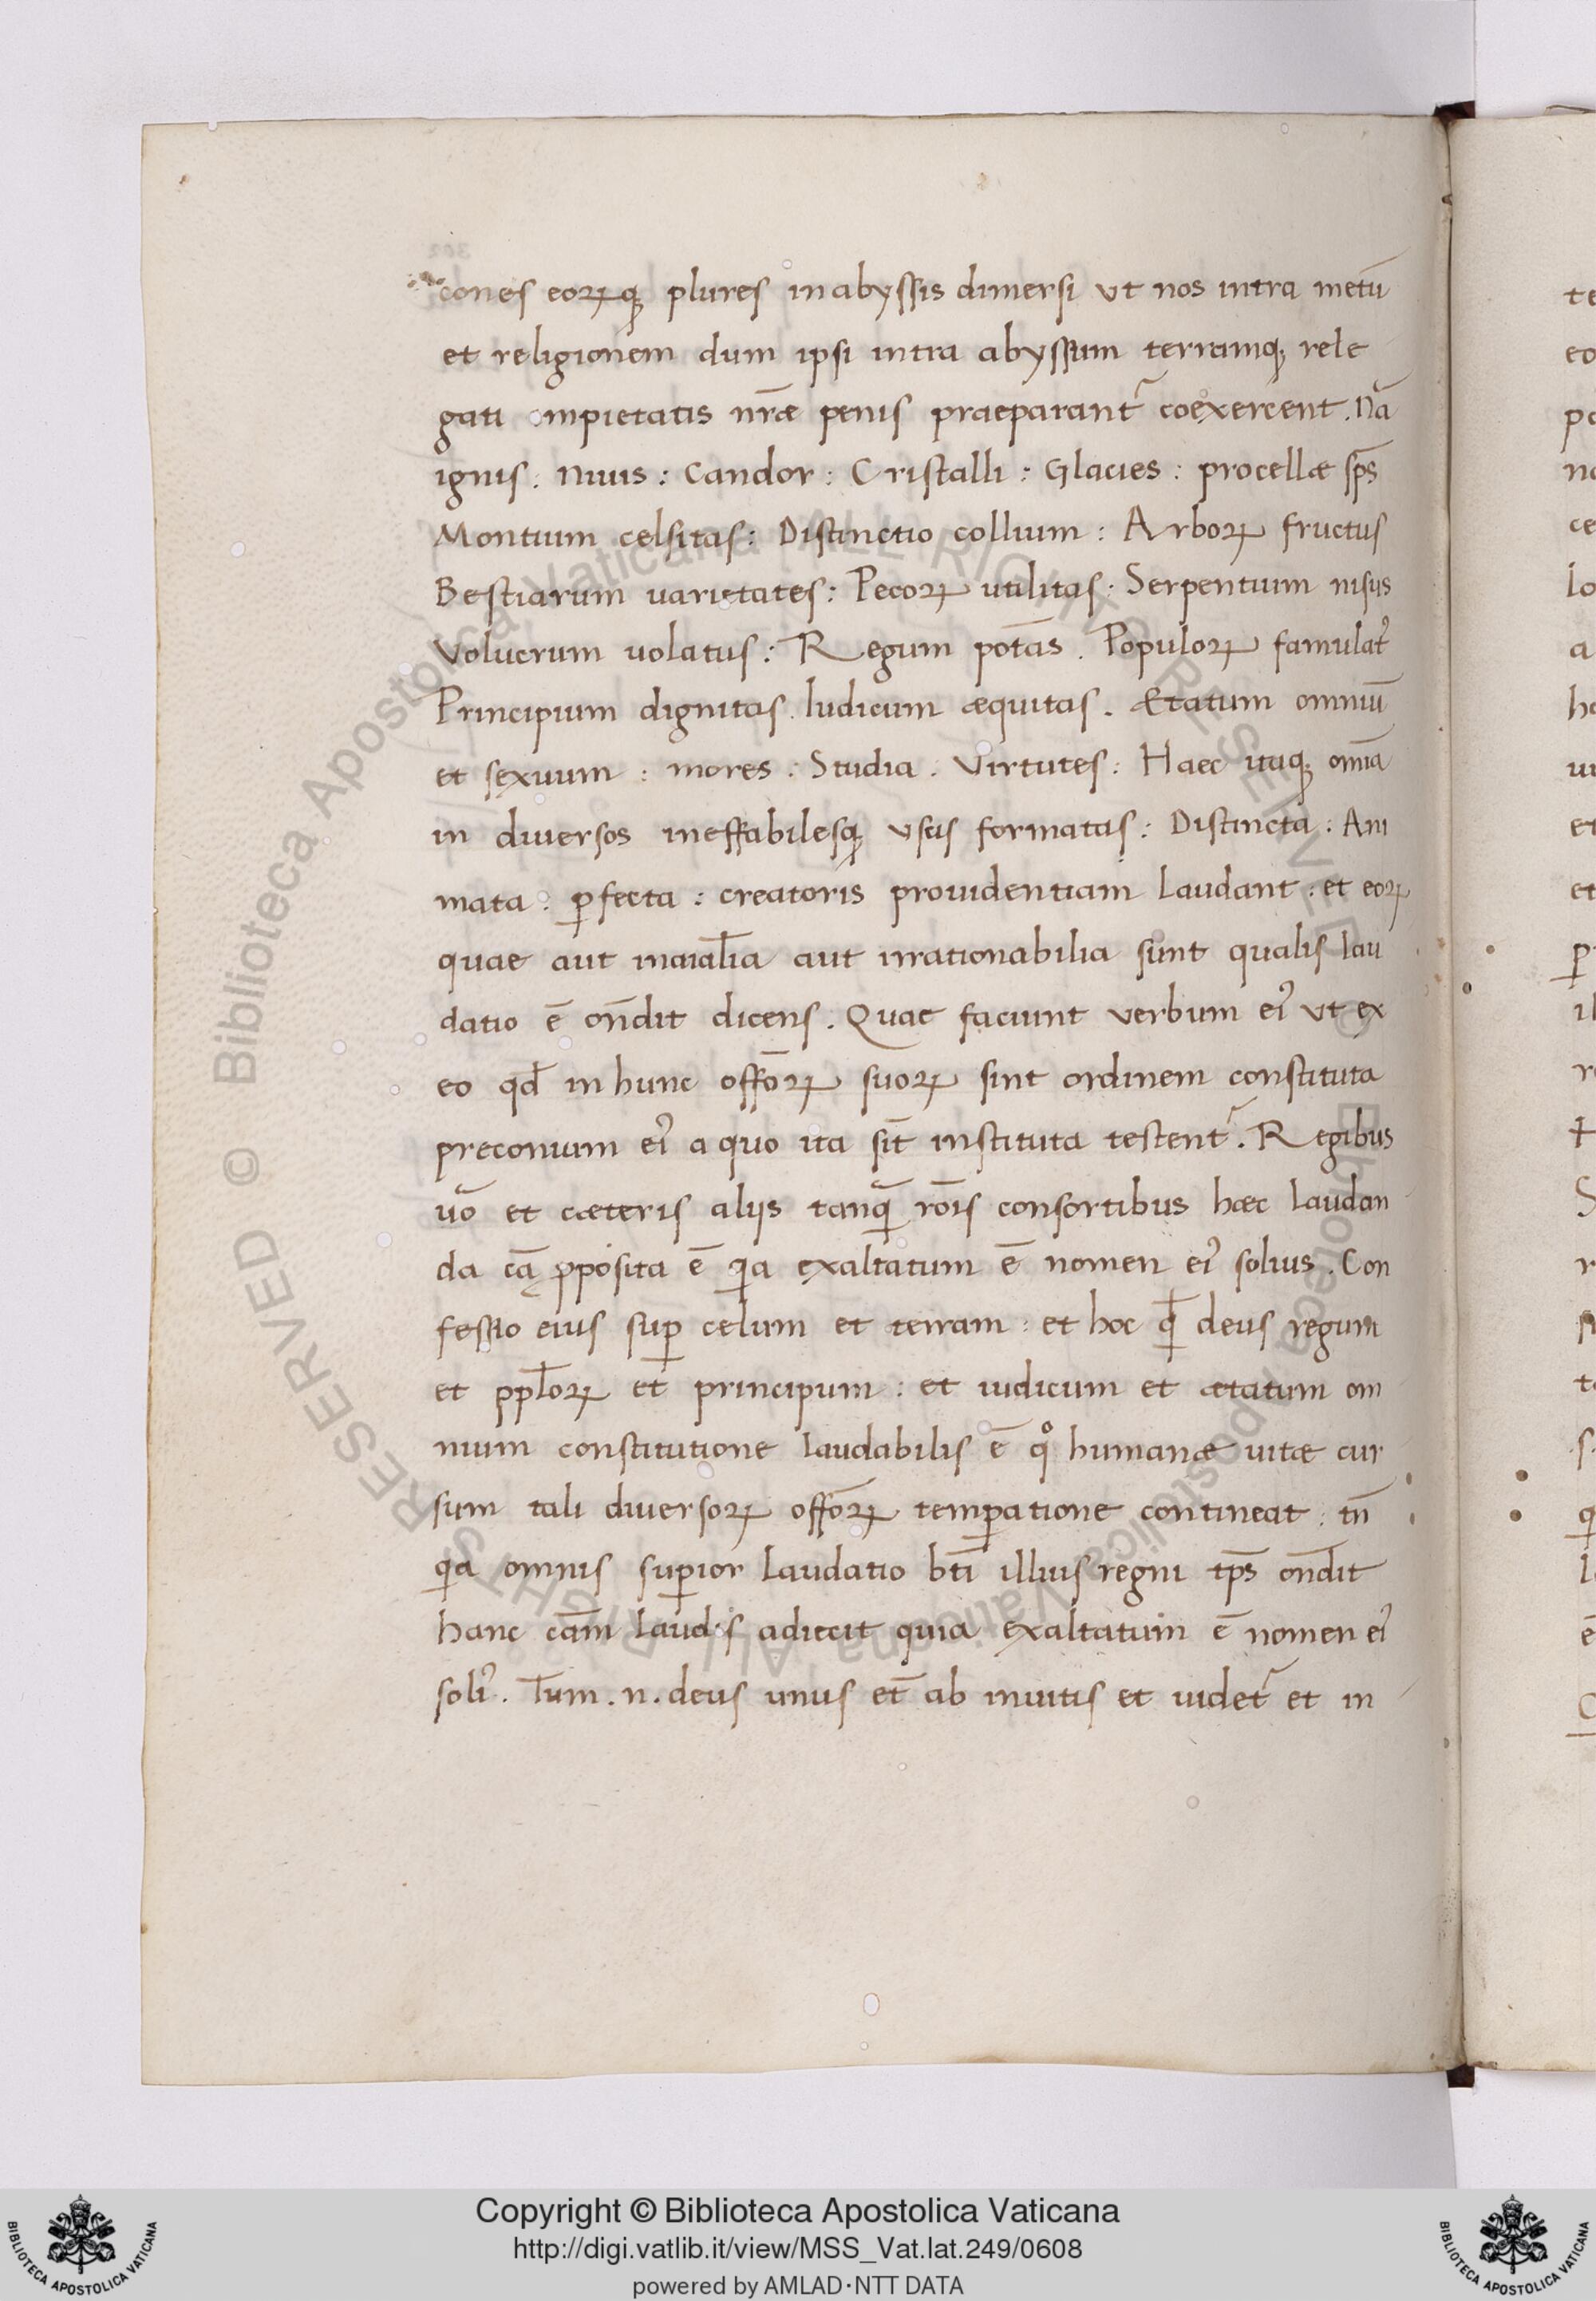 cones eorꝝq; plures in abyssis dimersi vt nos intra metū
et religionem dum ipsi intra abyssum terramq; rele
gati impietatis nr̄ae penis praeparant᷑ coexercent. Nā
ignis: Niuis: Candor: Cristalli: Glacies: procellæ sp̄s
Montium celsitas: Distinctio collium: Arborꝝ fructus
Bestiarum uarietates: Pecorꝝ utilitas: Serpentium nisus
Volucrum uolatus: Regum potās. Populorꝝ famulat᷒
Principium dignitas. Iudicum æquitas. Ætatum omniū
et sexuum: mores: Studia. Virtutes: Haec itaq; omīa
in diuersos ineffabilesq; vsus formatas: Distincta: Ani
mata: ꝑfecta: creatoris prouidentiam laudant: et eorꝝ
quae aut inaīalia aut irrationabilia sunt qualis lau
datio ē on̄dit dicens. Quae faciunt verbum ei᷒ vt ex
eo qd̄ in hunc offōrꝝ suorꝝ sint ordinem constituta
preconium ei᷒ a quo ita sīt instituta testent᷑. Regibus
uō et cæteris aliis tanq̄ rōis consortibus hæc laudan
da cā ꝓposita ē qia exaltatum ē nomen ei᷒ solius. Con
fessio eius suꝑ celum et terram: et hoc ꝙ deus regum
et pplōrꝝ et principum: et iudicum et ætatum om
nium constitutione laudabilis ē qͦ humanæ uitæ cur
sum tali diuersorꝝ offōrꝝ temꝑatione contineat: tn̄
qia omnis suꝑior laudatio bt̄i illius regni tp̄s on̄dit
hanc cām laudis adiecit quia exaltatum ē nomen ei᷒
soli᷒. Tum. n. deus unus et̄ ab inuitis et uidet᷑ et in
Copyright © Biblioteca Apostolica Vaticana
http://digi.vatlib.it/view/MSS_Vat.lat.249/0608
powered by AMLAD·NTT DATA